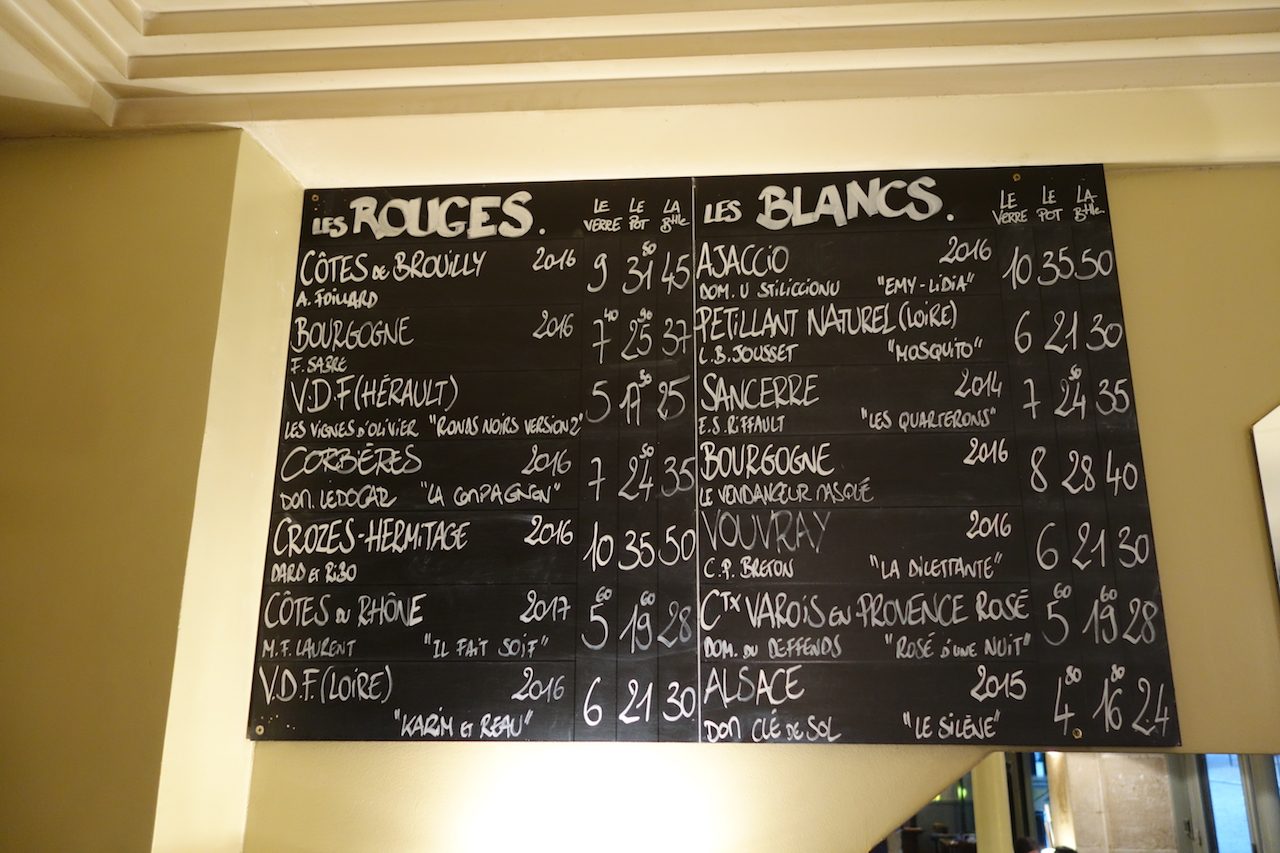 LES ROUGES. LE VERRE LE POT LA Blle
CÔTES DE BROUILLY 2016 9 31 50 45
A. FOILLARD
BOURGOGNE 2016 7 40 25 90 37
F. SABRE
V.D.F (HÉRAULT) 5 17 50 25
LES VIGNES D'OLIVIER "RONDS NOIRS VERSION 2"
CORBIÈRES 2016 7 24 50 35
DOM. LEDOGAR "LA COMPAGNON"
CROZES-HERMITAGE 2016 10 35 50
DARD ET RIBO
CÔTES DU RHÔNE 2017 5 60 19 60 28
M.F. LAURENT "IL FAIT SOIF"
V.D.F. (LOIRE) 2016 6 21 30
"KARIM ET REAU"
LES BLANCS. LE VERRE LE POT LA Blle
AJACCIO 2016 10 35 50
DOM. U STILICCIONU "EMY-LIDIA"
PETILLANT NATUREL (LOIRE) 6 21 30
L.B. JOUSSET "MOSQUITO"
SANCERRE 2014 7 24 50 35
E.S. RIFFAULT "LES QUARTERONS"
BOURGOGNE 2016 8 28 40
LE VENDANGEUR MASQUÉ
VOUVRAY 2016 6 21 30
C.P. BRETON "LA DILETTANTE"
CTX VAROIS EN PROVENCE ROSÉ 5 60 19 60 28
DOM. DU DEFFENDS "ROSÉ D'UNE NUIT"
ALSACE 2015 4 80 16 80 24
DOM CLÉ DE SOL "LE SILÈNE"